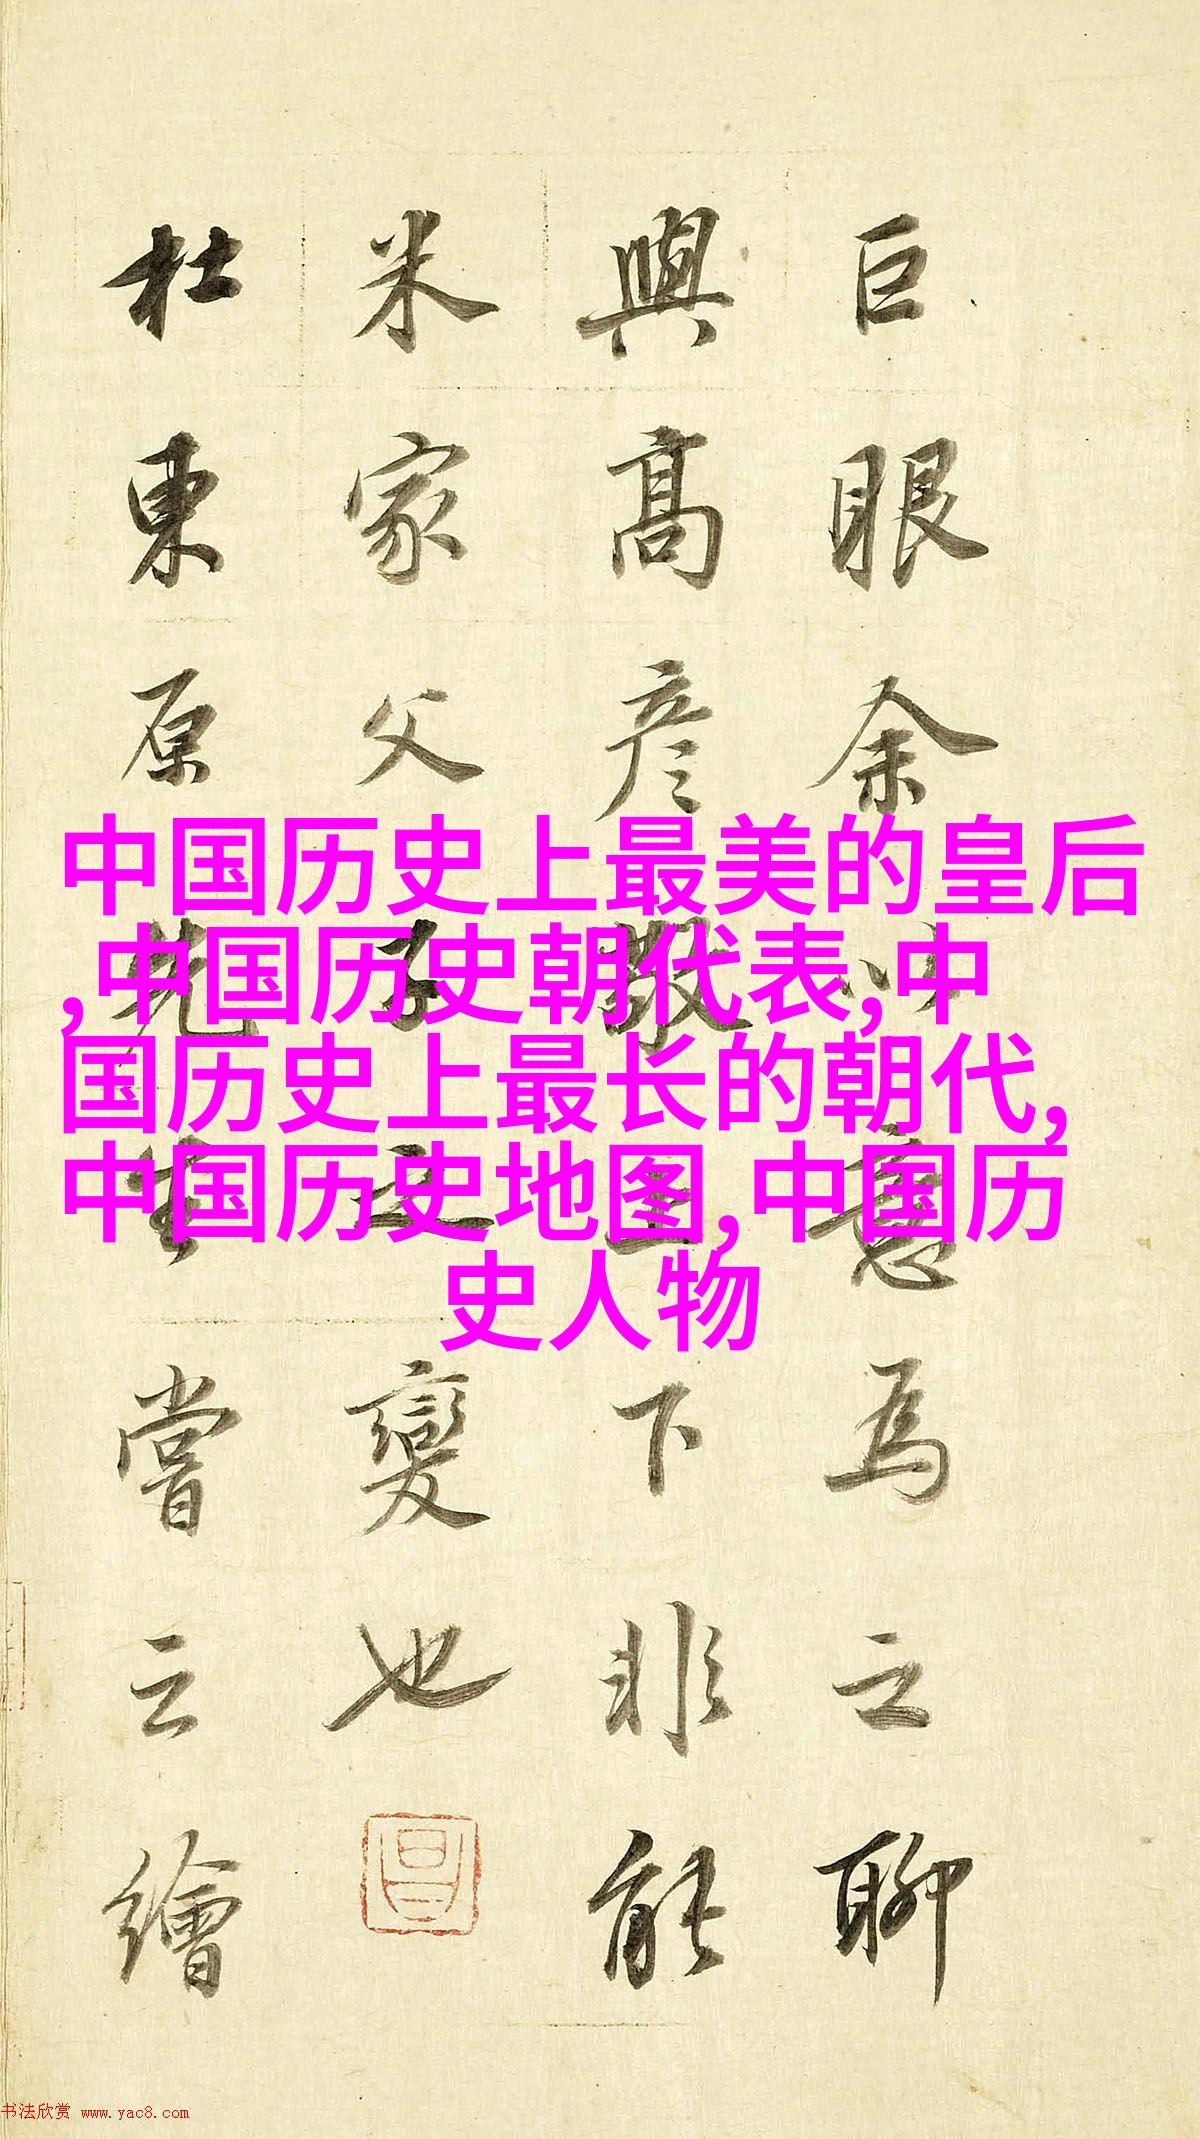 巨眼余以意為之聊
與髙彦敬上下非能
米家父子之變也
杜東原先生嘗云繪
中国历史上最美的皇后
,中国历史朝代表,中
国历史上最长的朝代,
中国历史地图,中国历
史人物
书法欣赏 www.yac8.com